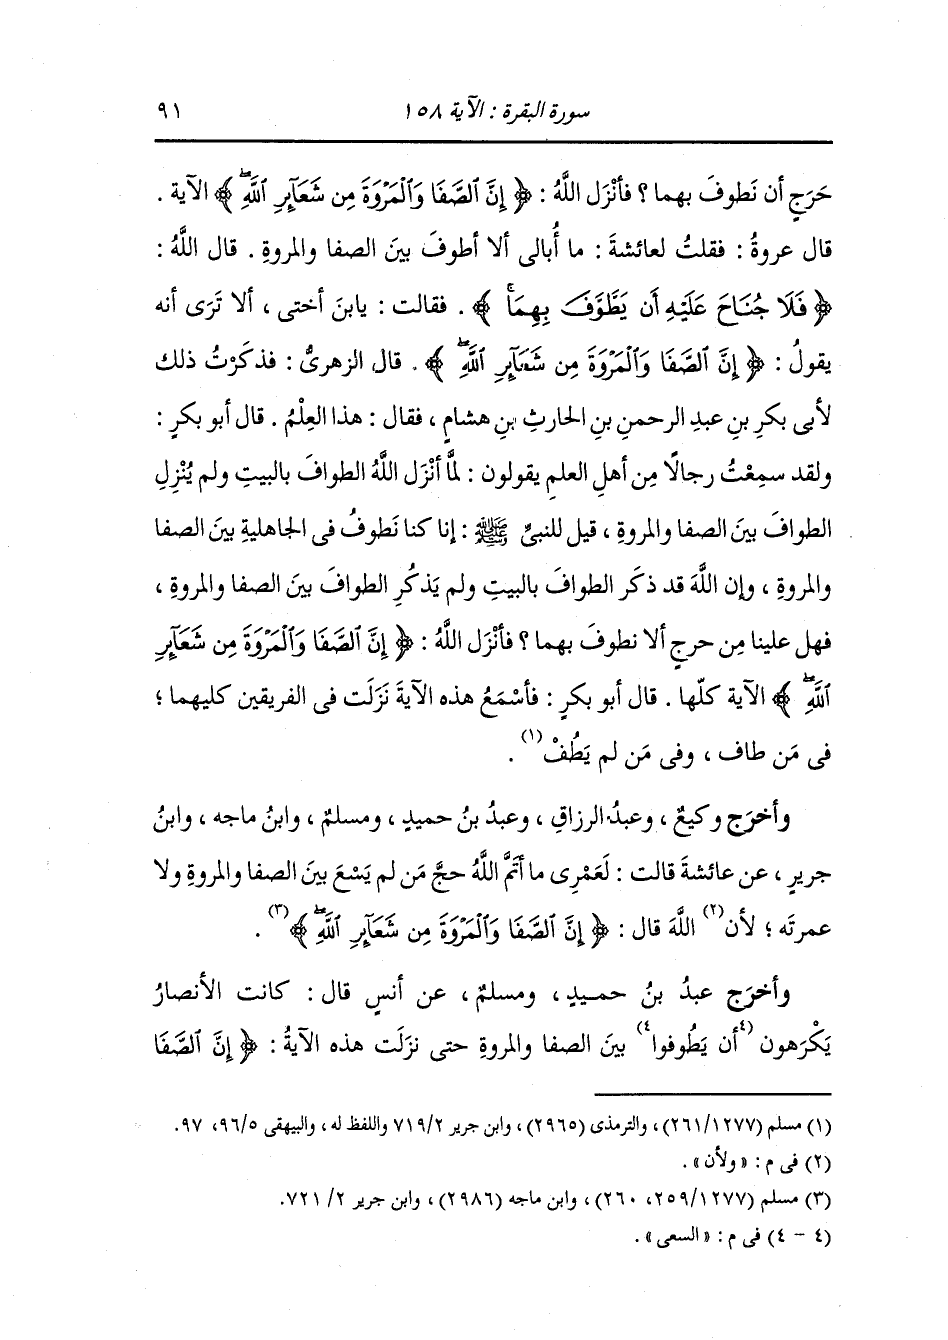 سورة البقرة : الآية ١٥٨ ٩١
حَرَجٍ أن نَطوفَ بهما ؟ فأنْزَل اللَّهُ : ﴿ إِنَّ ٱلصَّفَا وَٱلْمَرْوَةَ مِن شَعَآئِرِ ٱللَّهِۖ ﴾ الآية .
قال عروةُ : فقلتُ لعائشةَ : ما أُبالى ألا أطوفَ بينَ الصفا والمروةِ . قال اللَّهُ :
﴿ فَلَا جُنَاحَ عَلَيْهِ أَن يَطَّوَّفَ بِهِمَاۚ ﴾ . فقالت : يابنَ أختى ، ألا تَرَى أنه
يقولُ : ﴿ إِنَّ ٱلصَّفَا وَٱلْمَرْوَةَ مِن شَعَآئِرِ ٱللَّهِۖ ﴾ . قال الزهرىُّ : فذكَرْتُ ذلك
لأبى بكرِ بنِ عبدِ الرحمنِ بنِ الحارثِ بنِ هشامٍ ، فقال : هذا العِلْمُ . قال أبو بكرٍ :
ولقد سمِعْتُ رجالًا مِن أهلِ العلمِ يقولون : لمَّا أنْزَل اللَّهُ الطوافَ بالبيتِ ولم يُنْزِلِ
الطوافَ بينَ الصفا والمروةِ ، قيل للنبىِّ ﷺ : إنا كنا نَطوفُ فى الجاهليةِ بينَ الصفا
والمروةِ ، وإن اللَّهَ قد ذكَر الطوافَ بالبيتِ ولم يَذكُرِ الطوافَ بينَ الصفا والمروةِ ،
فهل علينا مِن حرجٍ ألا نطوفَ بهما ؟ فأنْزَل اللَّهُ : ﴿ إِنَّ ٱلصَّفَا وَٱلْمَرْوَةَ مِن شَعَآئِرِ
ٱللَّهِۖ ﴾ الآية كلّها . قال أبو بكرٍ : فأسْمَعُ هذه الآيةَ نَزَلَت فى الفريقين كليهما ؛
فى مَن طاف ، وفى مَن لم يَطُفْ(١) .
وأخرَج وكيعٌ ، وعبدُ الرزاقِ ، وعبدُ بنُ حميدٍ ، ومسلمٌ ، وابنُ ماجه ، وابنُ
جريرٍ ، عن عائشةَ قالت : لَعَمْرِى ما أتَمَّ اللَّهُ حجَّ مَن لم يَسْعَ بينَ الصفا والمروةِ ولا
عمرتَه ؛ لأن(٢) اللَّهَ قال : ﴿ إِنَّ ٱلصَّفَا وَٱلْمَرْوَةَ مِن شَعَآئِرِ ٱللَّهِۖ ﴾(٣) .
وأخرَج عبدُ بنُ حميدٍ ، ومسلمٌ ، عن أنسٍ قال : كانت الأنصارُ
يَكْرَهون (٤أن يَطُوفوا٤) بينَ الصفا والمروةِ حتى نزَلَت هذه الآيةُ : ﴿ إِنَّ ٱلصَّفَا
(١) مسلم (٢٦١/١٢٧٧) ، والترمذى (٢٩٦٥) ، وابن جرير ٧١٩/٢ واللفظ له ، والبيهقى ٩٦/٥، ٩٧.
(٢) فى م : « ولأن » .
(٣) مسلم (٢٥٩/١٢٧٧، ٢٦٠) ، وابن ماجه (٢٩٨٦) ، وابن جرير ٢/ ٧٢١.
(٤ - ٤) فى م : « السعى » .